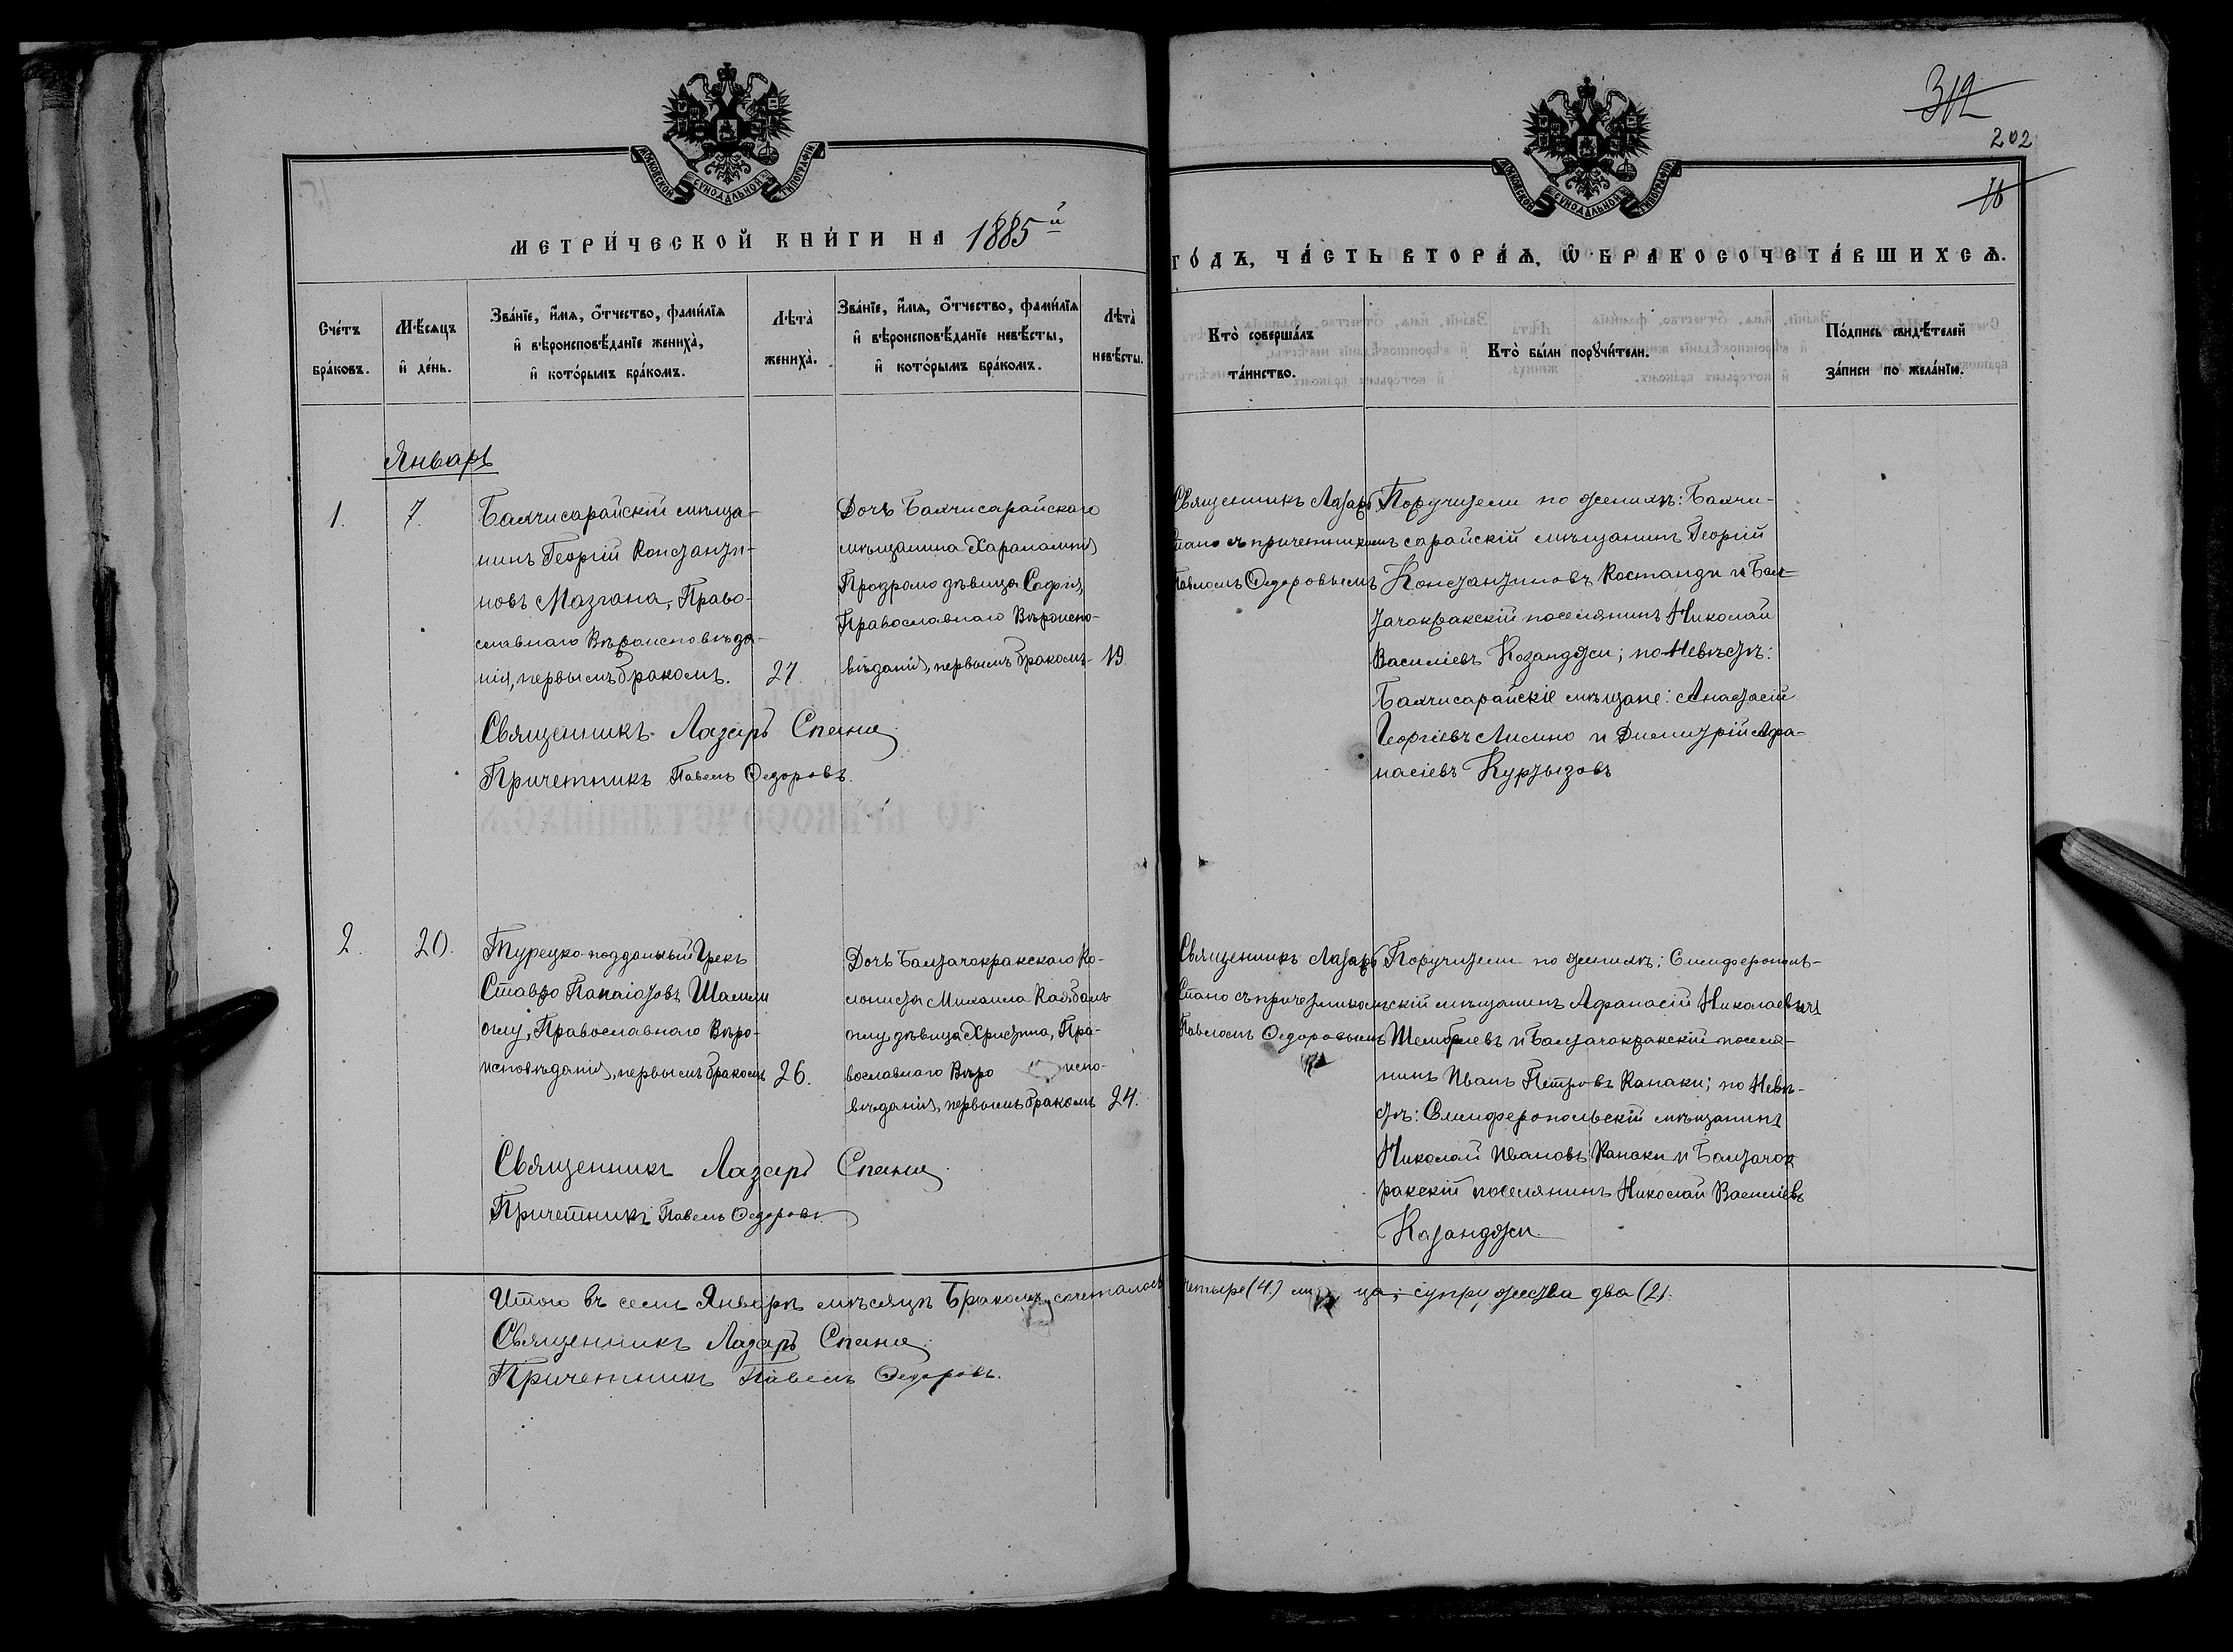 312
202
16
МОСКОВСКОЙ СѴНОДАЛЬНОЙ ТИПОГРАФІИ
МОСКОВСКОЙ СѴНОДАЛЬНОЙ ТИПОГРАФІИ
МЕТРИ́ЧЕСКОЙ КНИ́ГИ НА 1885й
ГО́ДЪ, ЧА́СТЬ ВТОРА́Ѧ, Ѽ БРАКОСОЧЕТА́ВШИХСѦ.
Сче́тъ бра́ковъ.
Мѣ́сяцъ и҆ де́нь.
Зва́нїе, и҆́мѧ, ѻ҆́тчество, фами́лїѧ и҆ вѣроисповѣ́данїе жениха̀, и҆ кото́рымъ бра́комъ.
Лѣта̀ жениха̀.
Зва́нїе, и҆́мѧ, ѻ҆́тчество, фами́лїѧ и҆ вѣроисповѣ́данїе невѣ́сты, и҆ кото́рымъ бра́комъ.
Лѣта̀ невѣ́сты.
Кто̀ соверша́лъ та́инство.
Кто̀ бы́ли порꙋчи́тели.
По́дпись свидѣ́телей за́писи по жела́нїю.
Январь
1.
7.
Бахчисарайскій мѣща-
нинъ Георгій Константи-
новъ Мазгана, Право-
славнаго Вѣроисповѣда-
нія, первымъ бракомъ.
27.
Дочь Бахчисарайскаго
мѣщанина Харалампія
Продромо дѣвица Софія,
Православнаго Вѣроиспо-
вѣданія, первымъ бракомъ
19.
Священникъ Лазарь
Спано съ причетникомъ
Павломъ Ѳедоровымъ
Поручители по женихѣ: Бахчи-
сарайскій мѣщанинъ Георгій
Константиновъ Костанди и Бал-
тачокракскій поселянинъ Николай
Василіевъ Козанджи; по Невѣстѣ:
Бахчисарайскіе мѣщане: Анастасій
Георгіевъ Лисино и Димитрій Афа-
насіевъ Куртызовъ
Священникъ Лазарь Спано
Причетникъ Павелъ Ѳедоровъ.
2.
20.
Турецко-подданный Грекъ
Ставро Панаіотовъ Шалы
оглу, Православнаго Вѣро-
исповѣданія, первымъ бракомъ
26.
Дочь Балтачокракскаго Ко-
лониста Михаила
оглу дѣвица Христина, Пра-
вославнаго Вѣро испо-
вѣданія, первымъ бракомъ
24.
Священникъ Лазарь
Спано съ причетникомъ
Павломъ Ѳедоровымъ
Поручители по женихѣ: Симферополь-
скій мѣщанинъ Афанасій Николаевичъ
и Балтачокракскій поселя-
нинъ Иванъ Петровъ Канаки; по Невѣ-
стѣ: Симферопольскій мѣщанинъ
Николай Ивановъ Канаки и Балтачок
ракскій поселянинъ Николай Василіевъ
Казанджи.
Священникъ Лазарь Спано
Причетникъ Павелъ Ѳедоровъ
Итого въ семъ Январѣ мѣсяцѣ Бракомъ сочеталось четыре (4) ли ца; супружества два (2).
Священникъ Лазарь Спано
Причетникъ Павелъ Ѳедоровъ.